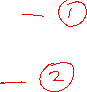 — ①
— ②